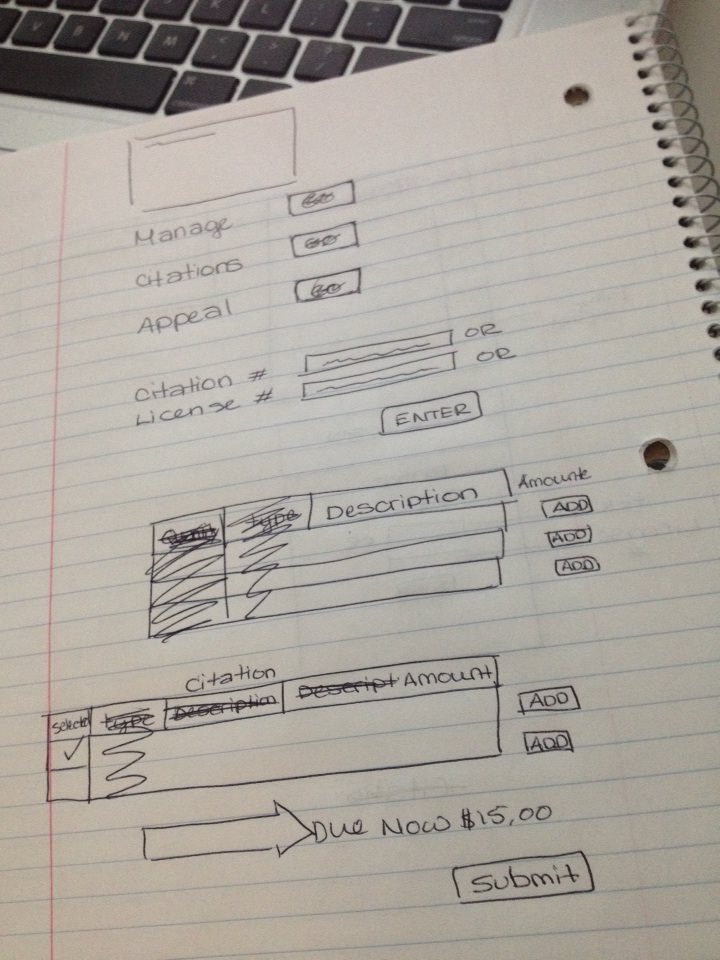 Manage
Citations
Appeal
Citation # OR
License # OR
ENTER
type Description Amount
ADD
ADD
ADD
Citation
Selected type Description Descript Amount
ADD
ADD
Due Now $15.00
Submit